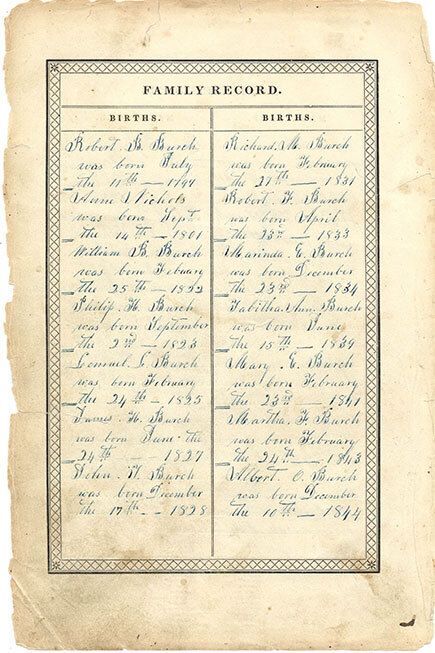 FAMILY RECORD.
BIRTHS.
Robert B. Burch
was born July
the 11th — 1797
Nichols
was born Sept
the 14th — 1801
William B. Burch
was born Febuary
the 25th — 1822
Philip. H. Burch
was born September
the 2nd — 1823
Lemuel L. Burch
was born February
the 24th — 1825
James. H. Burch
was born June the
24th — 1827
John. W. Burch
was born December
the 17th — 1828
BIRTHS.
Richard. M. Burch
was born February
the 27th — 1831
Robert. F. Burch
was born April
the 23rd — 1833
Marinda. E. Burch
was born December
the 23rd — 1834
Tabitha. Ann. Burch
was born June
the 15th — 1839
Mary. E. Burch
was born February
the 23rd — 1841
Martha. F. Burch
was born February
the 24th — 1843
Albert. O. Burch
was born December
the 10th — 1844